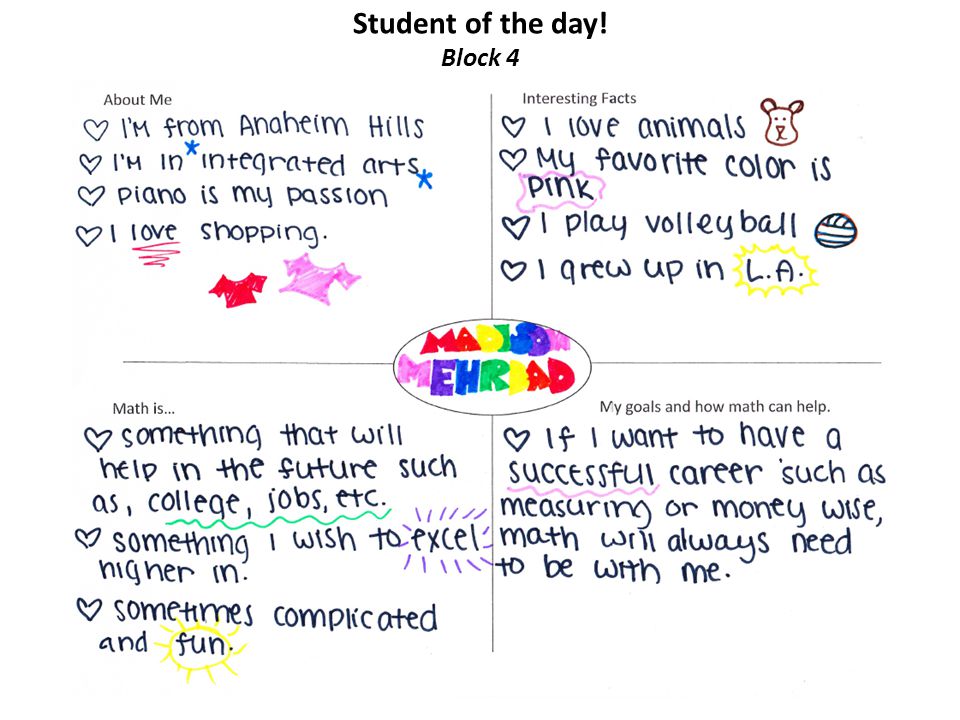 Student of the day!
Block 4
About Me
♡ I'M from Anaheim Hills
♡ I'M IN *integrated arts*
♡ piano is my passion
♡ I love shopping.
Interesting Facts
♡ I love animals
♡ My favorite color is
pink
♡ I play volleyball
♡ I grew up in L.A.
MADISON
MEHRBAD
Math is...
♡ something that will
help in the future such
as, college, jobs, etc.
♡ something I wish to excel
higher in.
♡ sometimes complicated
and fun.
My goals and how math can help.
♡ If I want to have a
successful career such as
measuring or money wise,
math will always need
to be with me.